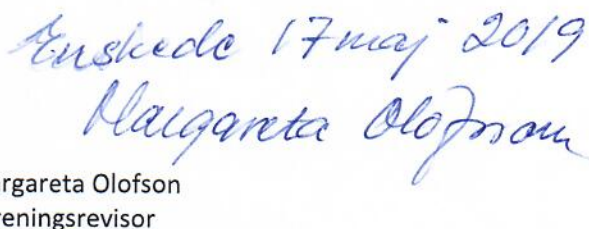 Enskede 17 maj 2019
Margareta Olofson
rgareta Olofson
reningsrevisor